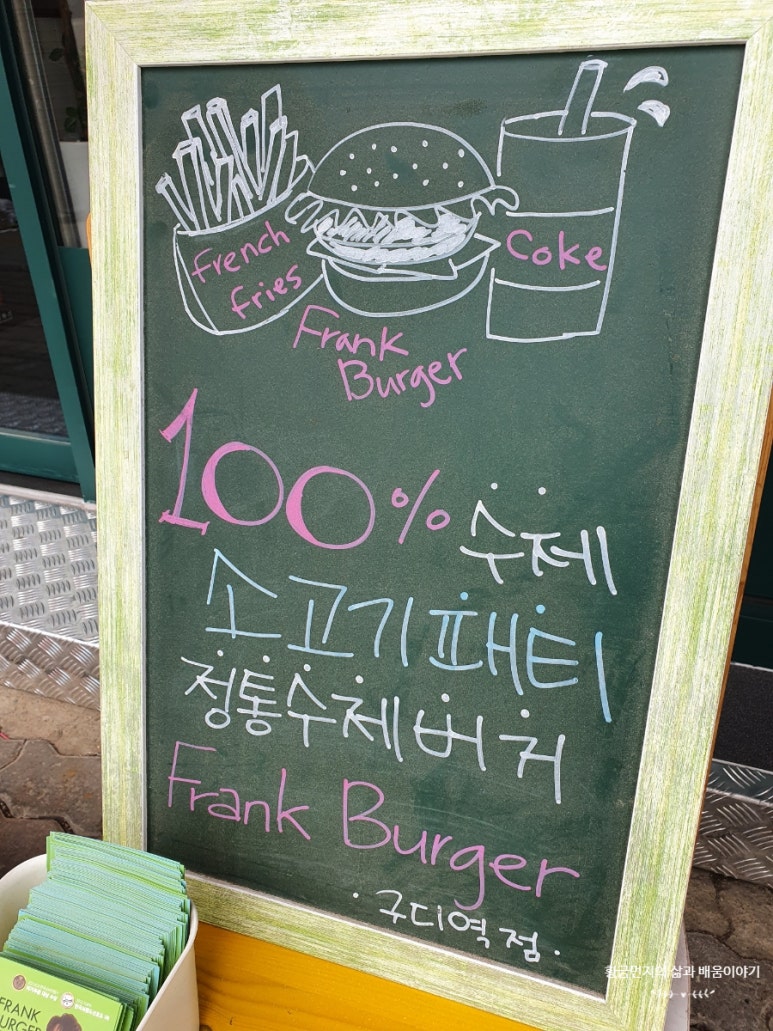 French
fries
Coke
Frank
Burger
100% 수제
소고기패티
정통수제버거
Frank Burger
· 구디역점.
삶과 배움이야기
FRANK
BURGER